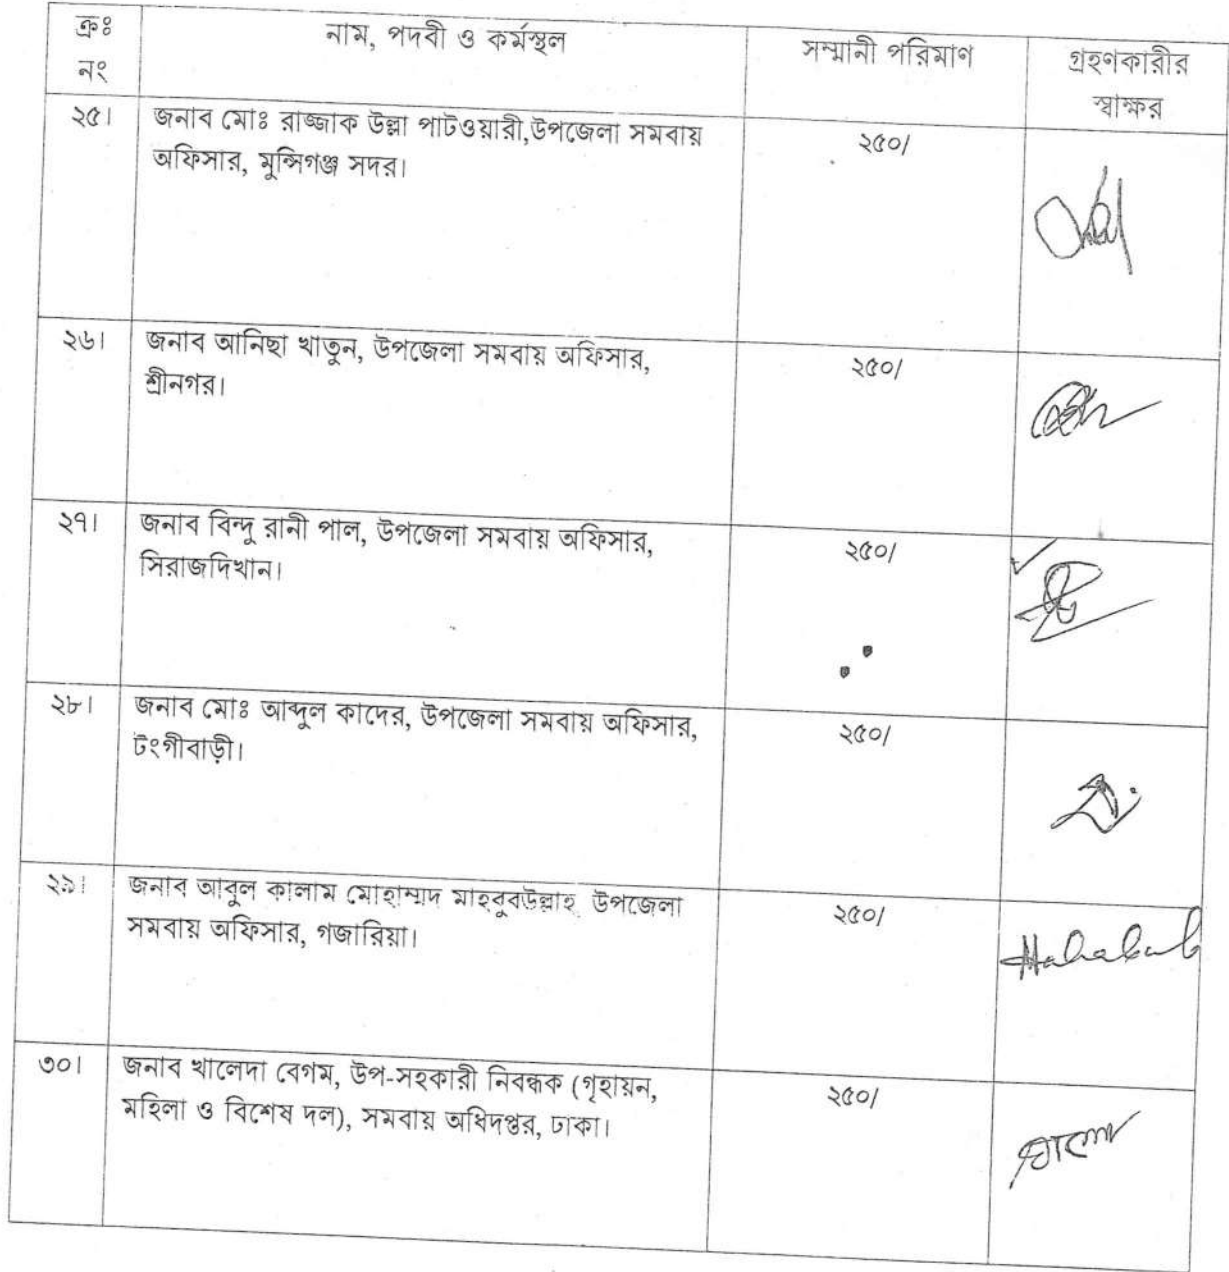 ক্রঃ নং	নাম, পদবী ও কর্মস্থল	সম্মানী পরিমাণ	গ্রহণকারীর স্বাক্ষর
২৫।	জনাব মোঃ রাজ্জাক উল্লা পাটওয়ারী,উপজেলা সমবায়	২৫০/
অফিসার, মুন্সিগঞ্জ সদর।
২৬।	জনাব আনিছা খাতুন, উপজেলা সমবায় অফিসার,	২৫০/
শ্রীনগর।
২৭।	জনাব বিন্দু রানী পাল, উপজেলা সমবায় অফিসার,	২৫০/
সিরাজদিখান।
২৮।	জনাব মোঃ আব্দুল কাদের, উপজেলা সমবায় অফিসার,	২৫০/
টংগীবাড়ী।
২৯।	জনাব আবুল কালাম মোহাম্মদ মাহবুবউল্লাহ উপজেলা	২৫০/
সমবায় অফিসার, গজারিয়া।	Mahabub
৩০।	জনাব খালেদা বেগম, উপ-সহকারী নিবন্ধক (গৃহায়ন,	২৫০/
মহিলা ও বিশেষ দল), সমবায় অধিদপ্তর, ঢাকা।